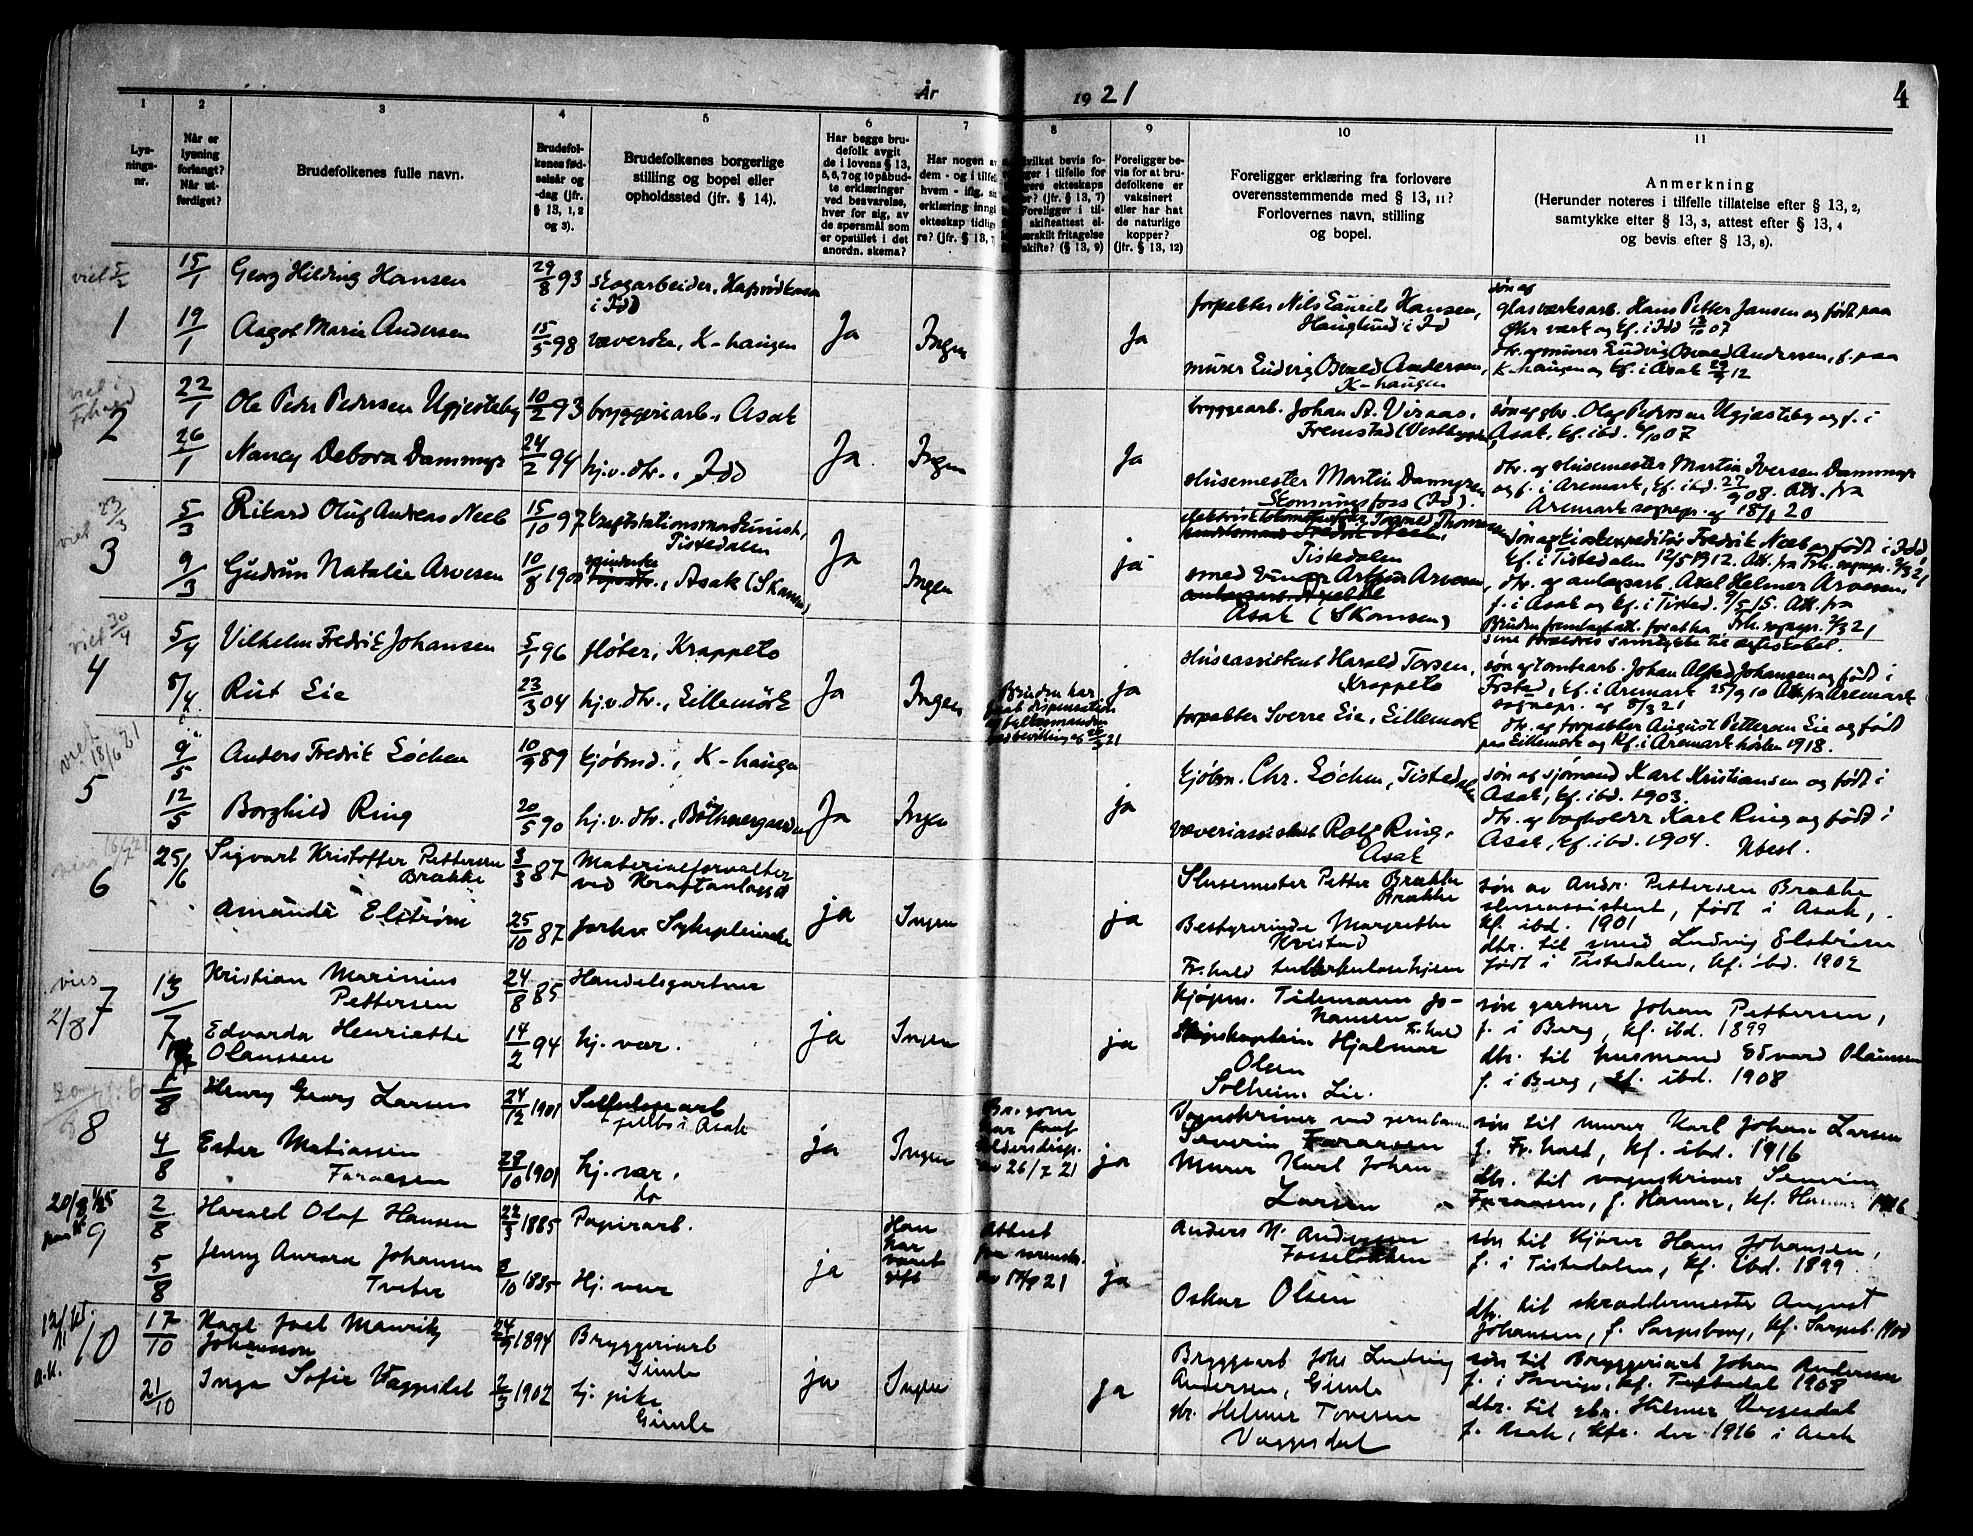 År 1921
4
1
2
3
4
5
6
7
8
9
10
11
Lys-
nings-
nr.
Når er
lysning
forlangt?
Når ut-
ferdiget?
Brudefolkenes fulle navn.
Brudefol-
kenes fød-
selsår og
-dag (jfr.
§ 13, 1, 2
og 3).
Brudefolkenes borgerlige
stilling og bopel eller
opholdssted (jfr. § 14).
Har begge bru-
defolk avgit
de i lovens § 13,
5, 6, 7 og 10 påbud-
te erklæringer
ved besvarelse,
hver for sig, av
de spørsmål som
er opstillet i det
anordn. skema?
Har nogen a
dem - og i tilfel
hvem - iflg. si
erklæring inng
ekteskap tidlig
re? (jfr. § 13,
hvilket bevis fo-
ger i tilfelle for
ere ekteskaps
r? (jfr. § 13, 7)
Foreligger i til-
skifteattest el-
ærskilt fritagelse
skifte? (§ 13, 9)
Foreligger be-
vis for at bru-
defolkene er
vaksinert
eller har hat
de naturlige
kopper?
(jfr. § 13, 12)
Foreligger erklæring fra forlovere
overensstemmende med § 13, 11?
Forlovernes navn, stilling
og bopel.
Anmerkning
(Herunder noteres i tilfelle tillatelse efter § 13, 2,
samtykke efter § 13, 3, attest efter § 13, 4
og bevis efter § 13, 8).
viet 5/2
1
15/1
19/1
Georg Hilding Hansen
Aagot Marie Andersen
29/8 93
15/5 98
skogarbeider,
i Idd
væverske, K-haugen
Ja
Ingen
Ja
forpakter Nils Laurits Hansen,
Hauglund i Id
murer Ludvig Osvald Andersen,
K-haugen
søn af
glasværksarb. Hans Petter Jansen og født paa
værk og kf. i Idd
dtr. af murer Ludvig Osvald Andersen, f. paa
K-haugen og kf. i Asak 12
viet i
2
22/1
26/1
Ole Peder Pedersen Ugjesteby
Nancy Debora Dammyr
10/2 93
24/2 94
bryggeriarb., Asak
hj.v. dtr., Idd
Ja
Ingen
Ja
bryggearb. Johan A. Viraas,
Fremstad
slusemester Martin Dammyren
Skonningsfoss (Id).
søn af gbr. Olaf Pedersen Ugjesteby og f. i
Asak, kf. ibd. 07
dtr. af slusemester Martin Iversen Dammyr
og f. i Aremark, kf. ibd. 27/9 08. Att. fra
Aremark sognepr. af 18/1 20
viet 23/3
3
5/3
9/3
Rikard Oluf Andreas Neeb
Gudrun Natalie Arvesen
15/10 97
10/8 1900
kraftstationsmaskinist,
Tistedalen
spinderske
Asak (Skansen)
Ja
Ingen
ja
Tistedalen
smed Arvesen,
Asak (Skansen)
søn af Fredrik Neeb og født i Idd,
kf. i Tistedalen 12/5 1912. Att. fra Frh. sognepr. 21
dtr. af anlægsarb. Axel Helmer Arvesen,
f. i Asak og kf. i Tisted. 9/5 15. Att. fra
Frh. sognepr. 7/3 21
Bruden fremlagt att. for at ha
sine forældres samtykke til egteskabet.
viet 30/4
4
5/4
8/4
Vilhelm Fredrik Johansen
Rut Lie
5/1 96
23/3 04
fløter, Krappeto
hj.v. dtr., Lillemörk
Ja
Ingen
Bruden har
faat dispensation
ja
sluseassistent Harald Torsen,
Krappeto
forpakter Sverre Lie, Lillemörk
søn af tomtearb. Johan Alfred Johansen og født i
kf. i Aremark 25/9 10 Att. fra Aremark
sognepr. af 8/3 21
dtr. af forpakter August Pettersen Lie og født
paa Lillemörk og kf. i Aremark høsten 1918.
viet 18/6 21
5
9/5
12/5
Anders Fredrik Løchen
Borghild Ring
10/9 89
20/5 90
kjøbmd., K-haugen
hj.v. dtr.,
Ja
Ingen
ja
kjøbm. Chr. Løchen, Tistedalen
væveriassistent Rolf Ring,
Asak
søn af sjømand Karl Kristiansen og født i
Asak, kf. ibd. 1903.
dtr. af bogholder Karl Ring og født i
Asak, kf. ibd. 1904. Ubesl.
6
25/6
Sigvart Kristoffer Pettersen
Brække
Amanda Elstrøm
3/3 87
25/10 87
Materialforvalter
ved Kraftanlægget
forhv. Sykepleierske
ja
Ingen
ja
Slusemester Petter Brække
Brække
Bestyrerinde Margrethe
Kvistad
Fr.hald tuberkulosehjem
søn av Andr. Pettersen Brække
sluseassistent, født i Asak,
kf. ibd. 1901
dtr. til smed Ludvig Elstrøm
født i Tistedalen, kf. ibd. 1902
vies
2/8
7
13/7
Kristian Marinius
Pettersen
Edvarda Henriette
Olaussen
24/8 85
14/2 94
Handelsgartner
hj. vær.
ja
Ingen
ja
Kjøpm. Tidemann Jo-
hansen Fr.hald
Skipskaptein Hjalmar
Olsen
Solheim Lie.
søn gartner Johan Pettersen,
f. i Berg, kf. ibd. 1899
dtr. til husmand Edvard Olaussen
f. i Berg, kf. ibd. 1908
8
1/8
4/8
Henry Georg Larsen
Ester Matiassen
Faraasen
24/12 1901
29/10 1901
i Asak
hj. vær.
do
ja
Ingen
Br.gom
har faat
aldersdisp.
av 26/7 21
ja
Vognskriver ved jernbanen
Severin Faraasen
Murer Karl Johan
Larsen
søn til murer Karl Johan Larsen
f. Fr.hald, kf. ibd. 1916
dtr. til vognskriver Severin
Faraasen, f. Hamar, kf. Hamar 1916
9
2/8
5/8
Harald Olaf Hansen
Jenny Aurora Johansen
Tveter
22/3 1885
3/10 1885
Papirarb.
Hj. vær
ja
Han
har
været
gift
Attest
fra sorensk.
ja
Anders N. Andersen
Fosseløkken
Oskar Olsen
søn til Kjører Hans Johansen,
f. i Tistedalen, kf. ibd. 1899.
dtr. til skræddermester August
Johansen, f. Sarpsborg, kf. Sarpsb. 1900
10
17/10
21/10
Karl Joel Mauritz
Johansson
Inga Sofie Vaggesdal
1894
1902
Bryggeriarb
Gimle
hj. pike
Gimle
ja
Ingen
ja
Bryggearb Johs Ludvig
Andersen, Gimle
gbr. Helmer Tovesen
Vaggesdal
søn til Bryggeriarb Johan Andersson
f. i Sverige, kf. Tistedal 1908
dtr. til gbr. Hilmer Vaggesdal
f. Asak, kfr. der 1916 i Asak